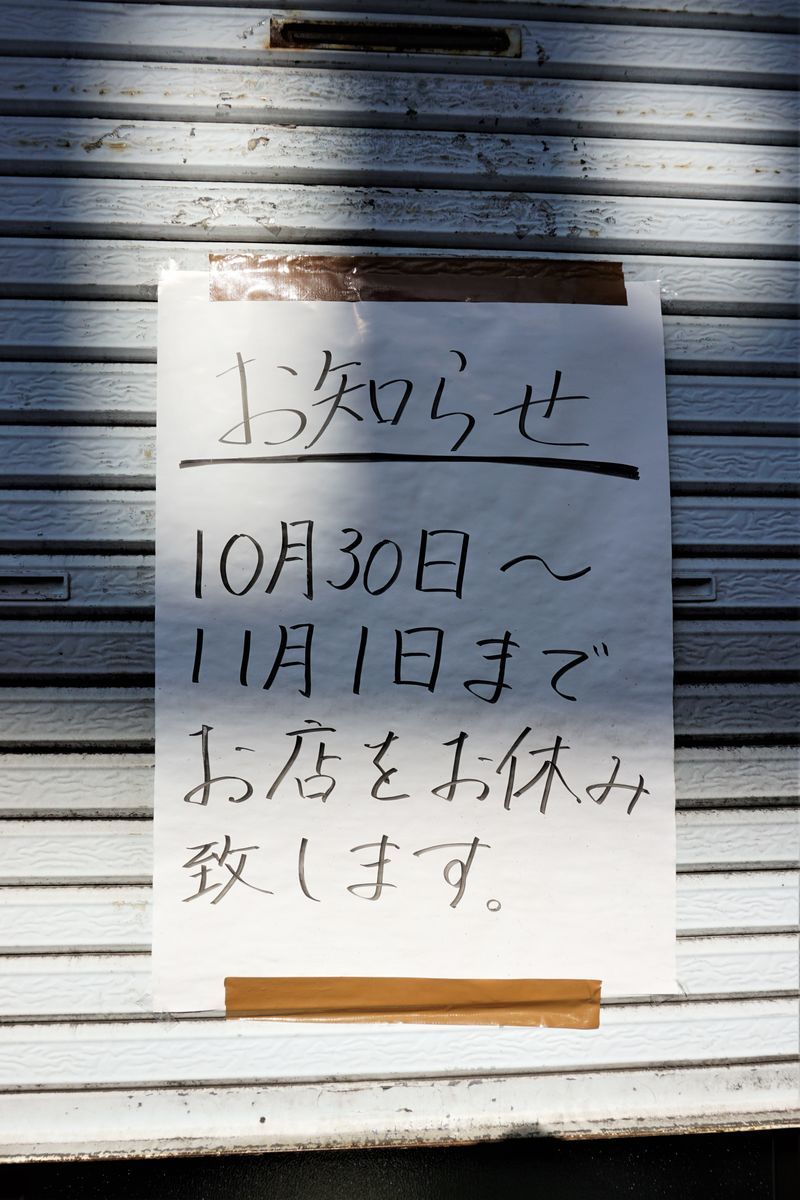 お知らせ
10月30日～
11月1日まで
お店をお休み
致します。